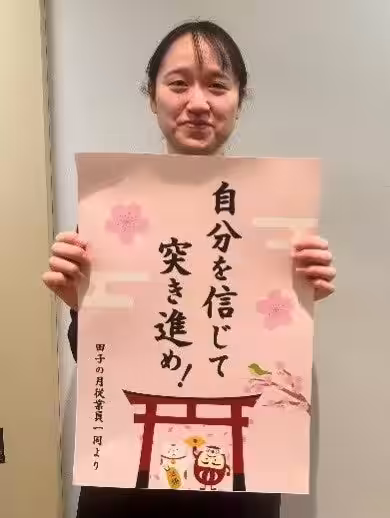 自分を信じて
突き進め!
田子の月従業員一同より